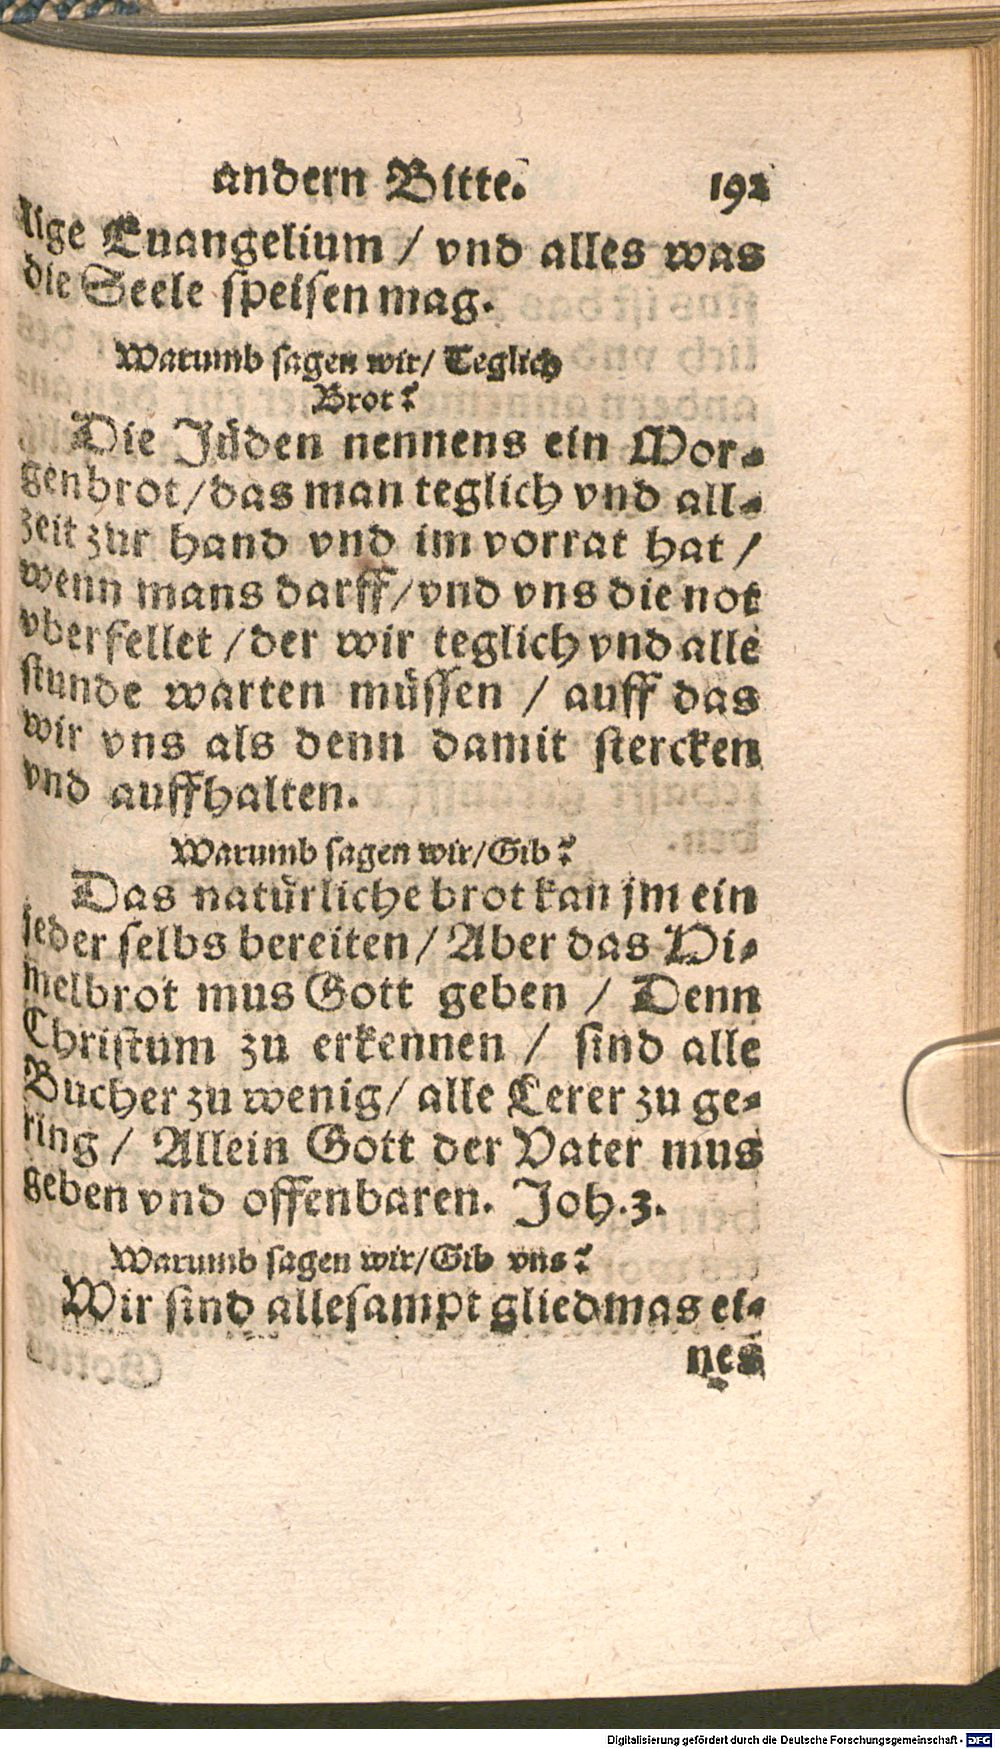 andern Bitte. 192
lige Euangelium / vnd alles was
die Seele speisen mag.
Warumb sagen wir / Teglich
Brot?
Die Jüden nennens ein Mor-
genbrot / das man teglich vnd all-
zeit zur hand vnd im vorrat hat /
wenn mans darff / vnd vns die not
vberfellet / der wir teglich vnd alle
stunde warten müssen / auff das
wir vns als denn damit stercken
vnd auffhalten.
Warumb sagen wir / Gib?
Das natürliche brot kan jm ein
jeder selbs bereiten / Aber das Hi-
melbrot mus Gott geben / Denn
Christum zu erkennen / sind alle
Bucher zu wenig / alle Lerer zu ge-
ring / Allein Gott der Vater mus
geben vnd offenbaren. Joh. 3.
Warumb sagen wir / Gib vns?
Wir sind allesampt gliedmas ei-
nes
Digitalisierung gefördert durch die Deutsche Forschungsgemeinschaft - DFG